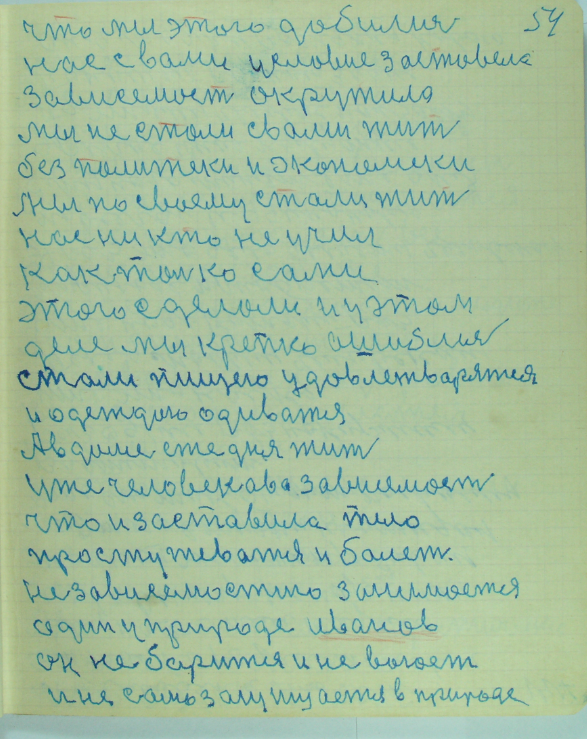 54
что мы этого добилия
нас свами условие заставела
зависемост окрутила
мы не стали свами жит
без политеки и экономеки
мы по своему стали жит
нас ни кто не учил
как толко сами
этого сделоли и уэтом
деле мы крепко ошиблия
стали пищею удовлетварятся
и одеждою одиватя
А в доме сжедня жит
уже человекава зависемост
что и заставила тело
простужеватя и болет.
не зависемостю занимоется
один у природе иванов
он не барится и не воюет
и не само защищается в природе